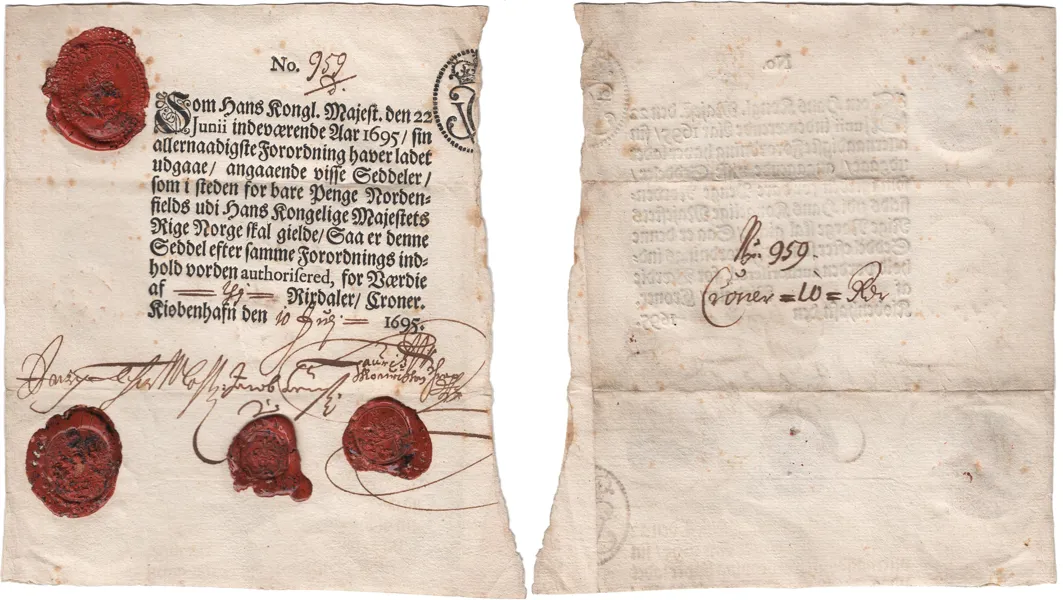 No. 959
Som Hans Kongl. Majest. den 22
Junii indeværende Aar 1695/ sin
allernaadigste Forordning haver ladet
udgaae/ angaaende visse Seddeler/
som i steden for bare Penge Norden-
fields udi Hans Kongelige Majestets
Rige Norge skal gielde/ Saa er denne
Seddel efter samme Forordnings ind-
hold vorden authorisered, for Værdie
af Rixdaler/ Croner.
Kiøbenhafn den 10 July 1695.
No. 959.
Croner = 10 =